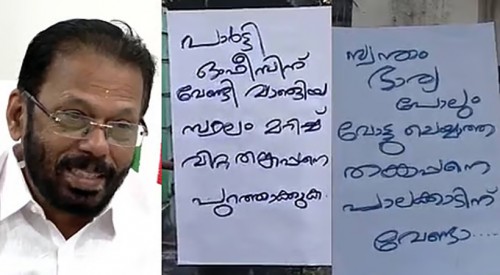 പാർട്ടി
ഓഫീസിന്
വേണ്ടി വാങ്ങിയ
സ്ഥലം മറിച്ച്
വിറ്റ തങ്കപ്പനെ
പുറത്താക്കുക
സ്വന്തം
ഭാര്യ
പോലും
വോട്ടു ചെയ്യാത്ത
തങ്കപ്പനെ
പാലക്കാടിന്
വേണ്ടാ....